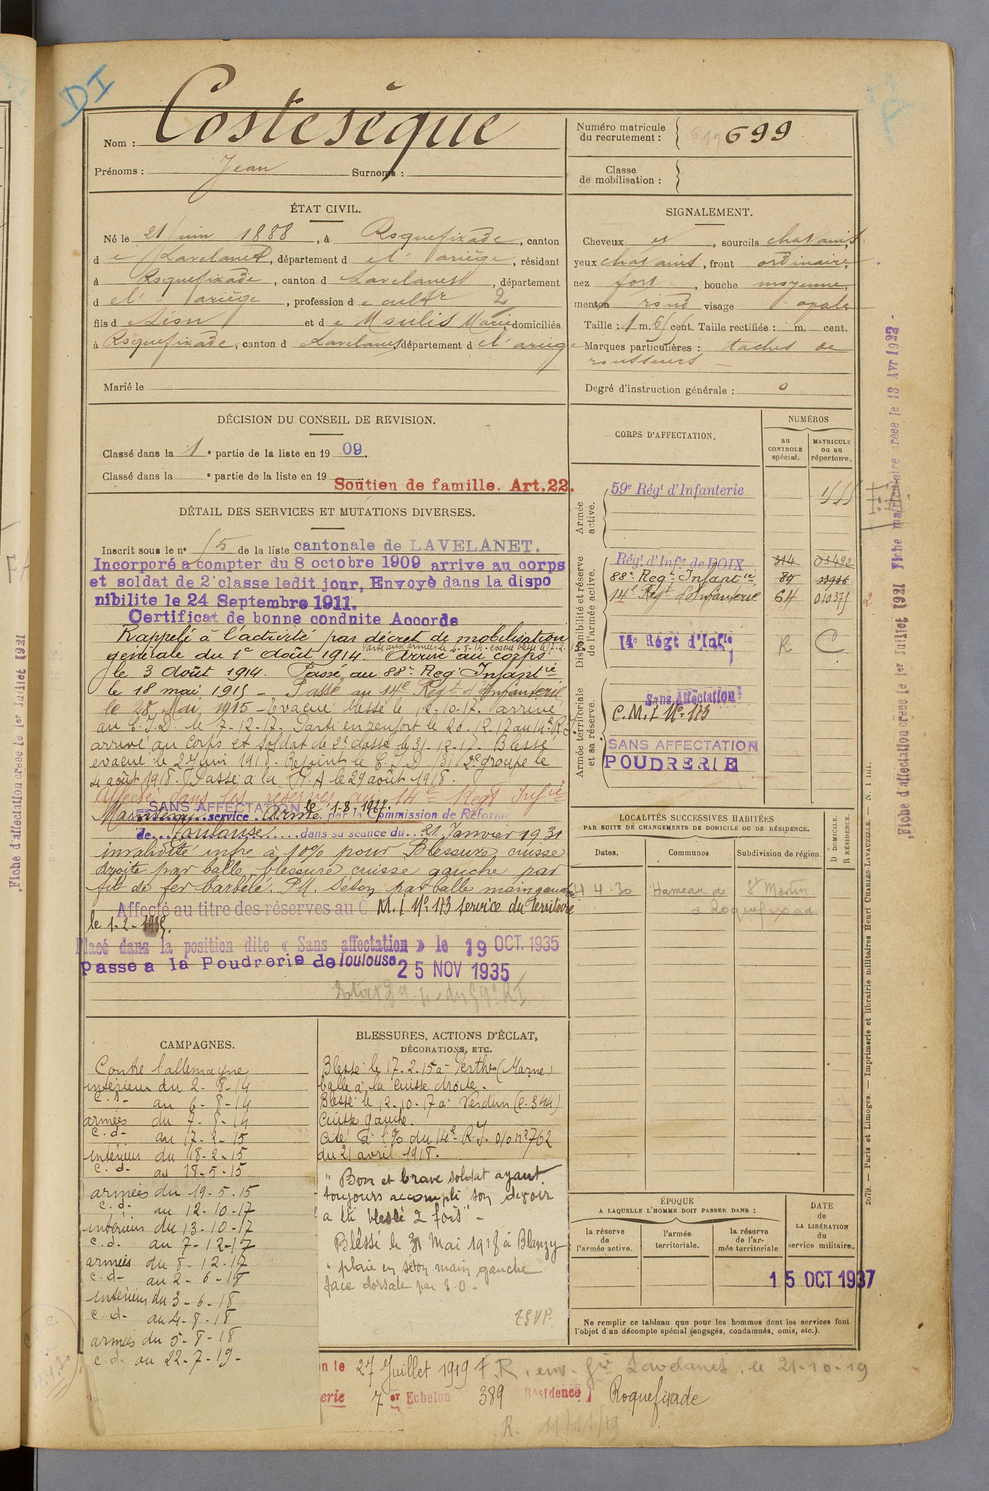 DI
Nom : Costesèque
Prénoms : Jean Surnoms :
Numéro matricule du recrutement : 699
Classe de mobilisation :
ÉTAT CIVIL.
Né le 21 juin 1888, à Roquefixade, canton
de Lavelanet, département de l'ariège, résidant
à Roquefixade, canton de Lavelanet, département
de l'ariège, profession de cultr 2
fils de Léon et de Moulis Marie domiciliés
à Roquefixade, canton de Lavelanet département de l'ariège
Marié le
SIGNALEMENT.
Cheveux et, sourcils chatains
yeux chatains, front ordinaire,
nez fort, bouche moyenne,
menton rond visage ovale
Taille : 1 m. 61 cent. Taille rectifiée : m. cent.
Marques particulières : taches de
rousseurs
Degré d'instruction générale : 0
DÉCISION DU CONSEIL DE REVISION.
Classé dans la 1e partie de la liste en 1909.
Classé dans la e partie de la liste en 19
Soutien de famille. Art.22.
DÉTAIL DES SERVICES ET MUTATIONS DIVERSES.
Inscrit sous le no 15 de la liste cantonale de LAVELANET.
Incorporé a compter du 8 octobre 1909 arrive au corps
et soldat de 2e classe ledit jour, Envoyé dans la dispo
nibilite le 24 Septembre 1911.
Certificat de bonne conduite Accorde
Rappelé à l'activité par décret de mobilisation
générale du 1e août 1914. Arrivé au corps
le 3 Août 1914. Passé au 88e Reg Infantie
le 18 mai 1915 - Passé au 14e Régt d'Infanterie
le 28 Mai 1915 - Evacué blessé le 12-10-17. arrivé
au C.I.D. le 7-12-17. Parti en renfort le 20-12-17 au 14e R.I.
arrivé au Corps et soldat de 2e classe le 31-12-17. Blessé
évacué le 2 juin 1918. Rejoint le C.I.D. 2e groupe le
4 août 1918. Passé à la le 29 août 1918.
Affecté dans les réserves au 14e Régt Infie
SANS AFFECTATION le 1-8-1927.
Maintenu service armé par la Commission de Réforme
de Toulouse dans sa séance du 21 Janvier 1931
invalidité infre à 10% pour Blessure cuisse
droite par balle, blessure cuisse gauche par
fil de fer barbelé. Pl. Séton par balle main gauche
Affecté au titre des réserves au C M.I No 173 service du Territoire
le 1-2-1935.
Placé dans la position dite « Sans affectation » le 19 OCT. 1935
Passe a la Poudrerie de Toulouse 25 NOV 1935
CORPS D'AFFECTATION.
NUMÉROS
au CONTROLE spécial.
MATRICULE ou au répertoire.
Armée active.
59e Régt d'Infanterie
Disponibilité et réserve de l'armée active.
Régt d'Infie de FOIX 314 03492
88e Reg Infantie 87
14e Régt d'Infanterie 64 010371
14e Régt d'Infie R C
Armée territoriale et sa réserve.
Sans Affectation
C.M.I No 173
SANS AFFECTATION
POUDRERIE
LOCALITÉS SUCCESSIVES HABITÉES
PAR SUITE DE CHANGEMENTS DE DOMICILE OU DE RÉSIDENCE.
Dates. Communes Subdivision de région. D DOMICILE. R RÉSIDENCE.
4 4.30 Hameau de St Martin
à Roquefixade
CAMPAGNES.
Contre l'allemagne
intérieur du 2-8-14
c.d. au 6-8-14
armées du 7-8-14
c.d. au 17-2-15
intérieur du 18-2-15
c.d. au 18-5-15
armées du 19-5-15
c.d. au 12-10-17
intérieur du 13-10-17
c.d. au 7-12-17
armées du 8-12-17
c.d. au 2-6-18
intérieur du 3-6-18
c.d. au 4-8-18
armées du 5-8-18
c.d. au 22-7-19-
BLESSURES, ACTIONS D'ÉCLAT, DÉCORATIONS, ETC.
Blessé le 17-2-15 à Perthes (Marne)
balle à la cuisse droite.
Blessé le 12-10-17 à Verdun (C.344)
Cuisse gauche.
Cité à l'o/o du 14e R.I. o/o no 762
du 21 avril 1918.
" Bon et brave soldat ayant
toujours accompli son devoir
a été blessé 2 fois" -
Blessé le 31 Mai 1918 à Blanzy
" plaie en séton main gauche
face dorsale par E.O -
TSVP.
ÉPOQUE
A LAQUELLE L'HOMME DOIT PASSER DANS :
la réserve de l'armée active.
l'armée territoriale.
la réserve de l'armée territoriale.
DATE de LA LIBÉRATION du service militaire.
15 OCT 1937
Ne remplir ce tableau que pour les hommes dont les services font
l'objet d'un décompte spécial (engagés, condamnés, omis, etc.).
on le 27 Juillet 1919 F.R. env. Gie Lavelanet, le 21-10-19
erie 7 er Echelon 389 Résidence Roquefixade
Fiche d'affectation créée le 1er Juillet 1921 Fiche matriculaire créée le 13 Avr 1922
Fiche d'affectation créée le 1er Juillet 1921
2679. — Paris et Limoges. — Imprimerie et librairie militaires Henri CHARLES-LAVAUZELLE.